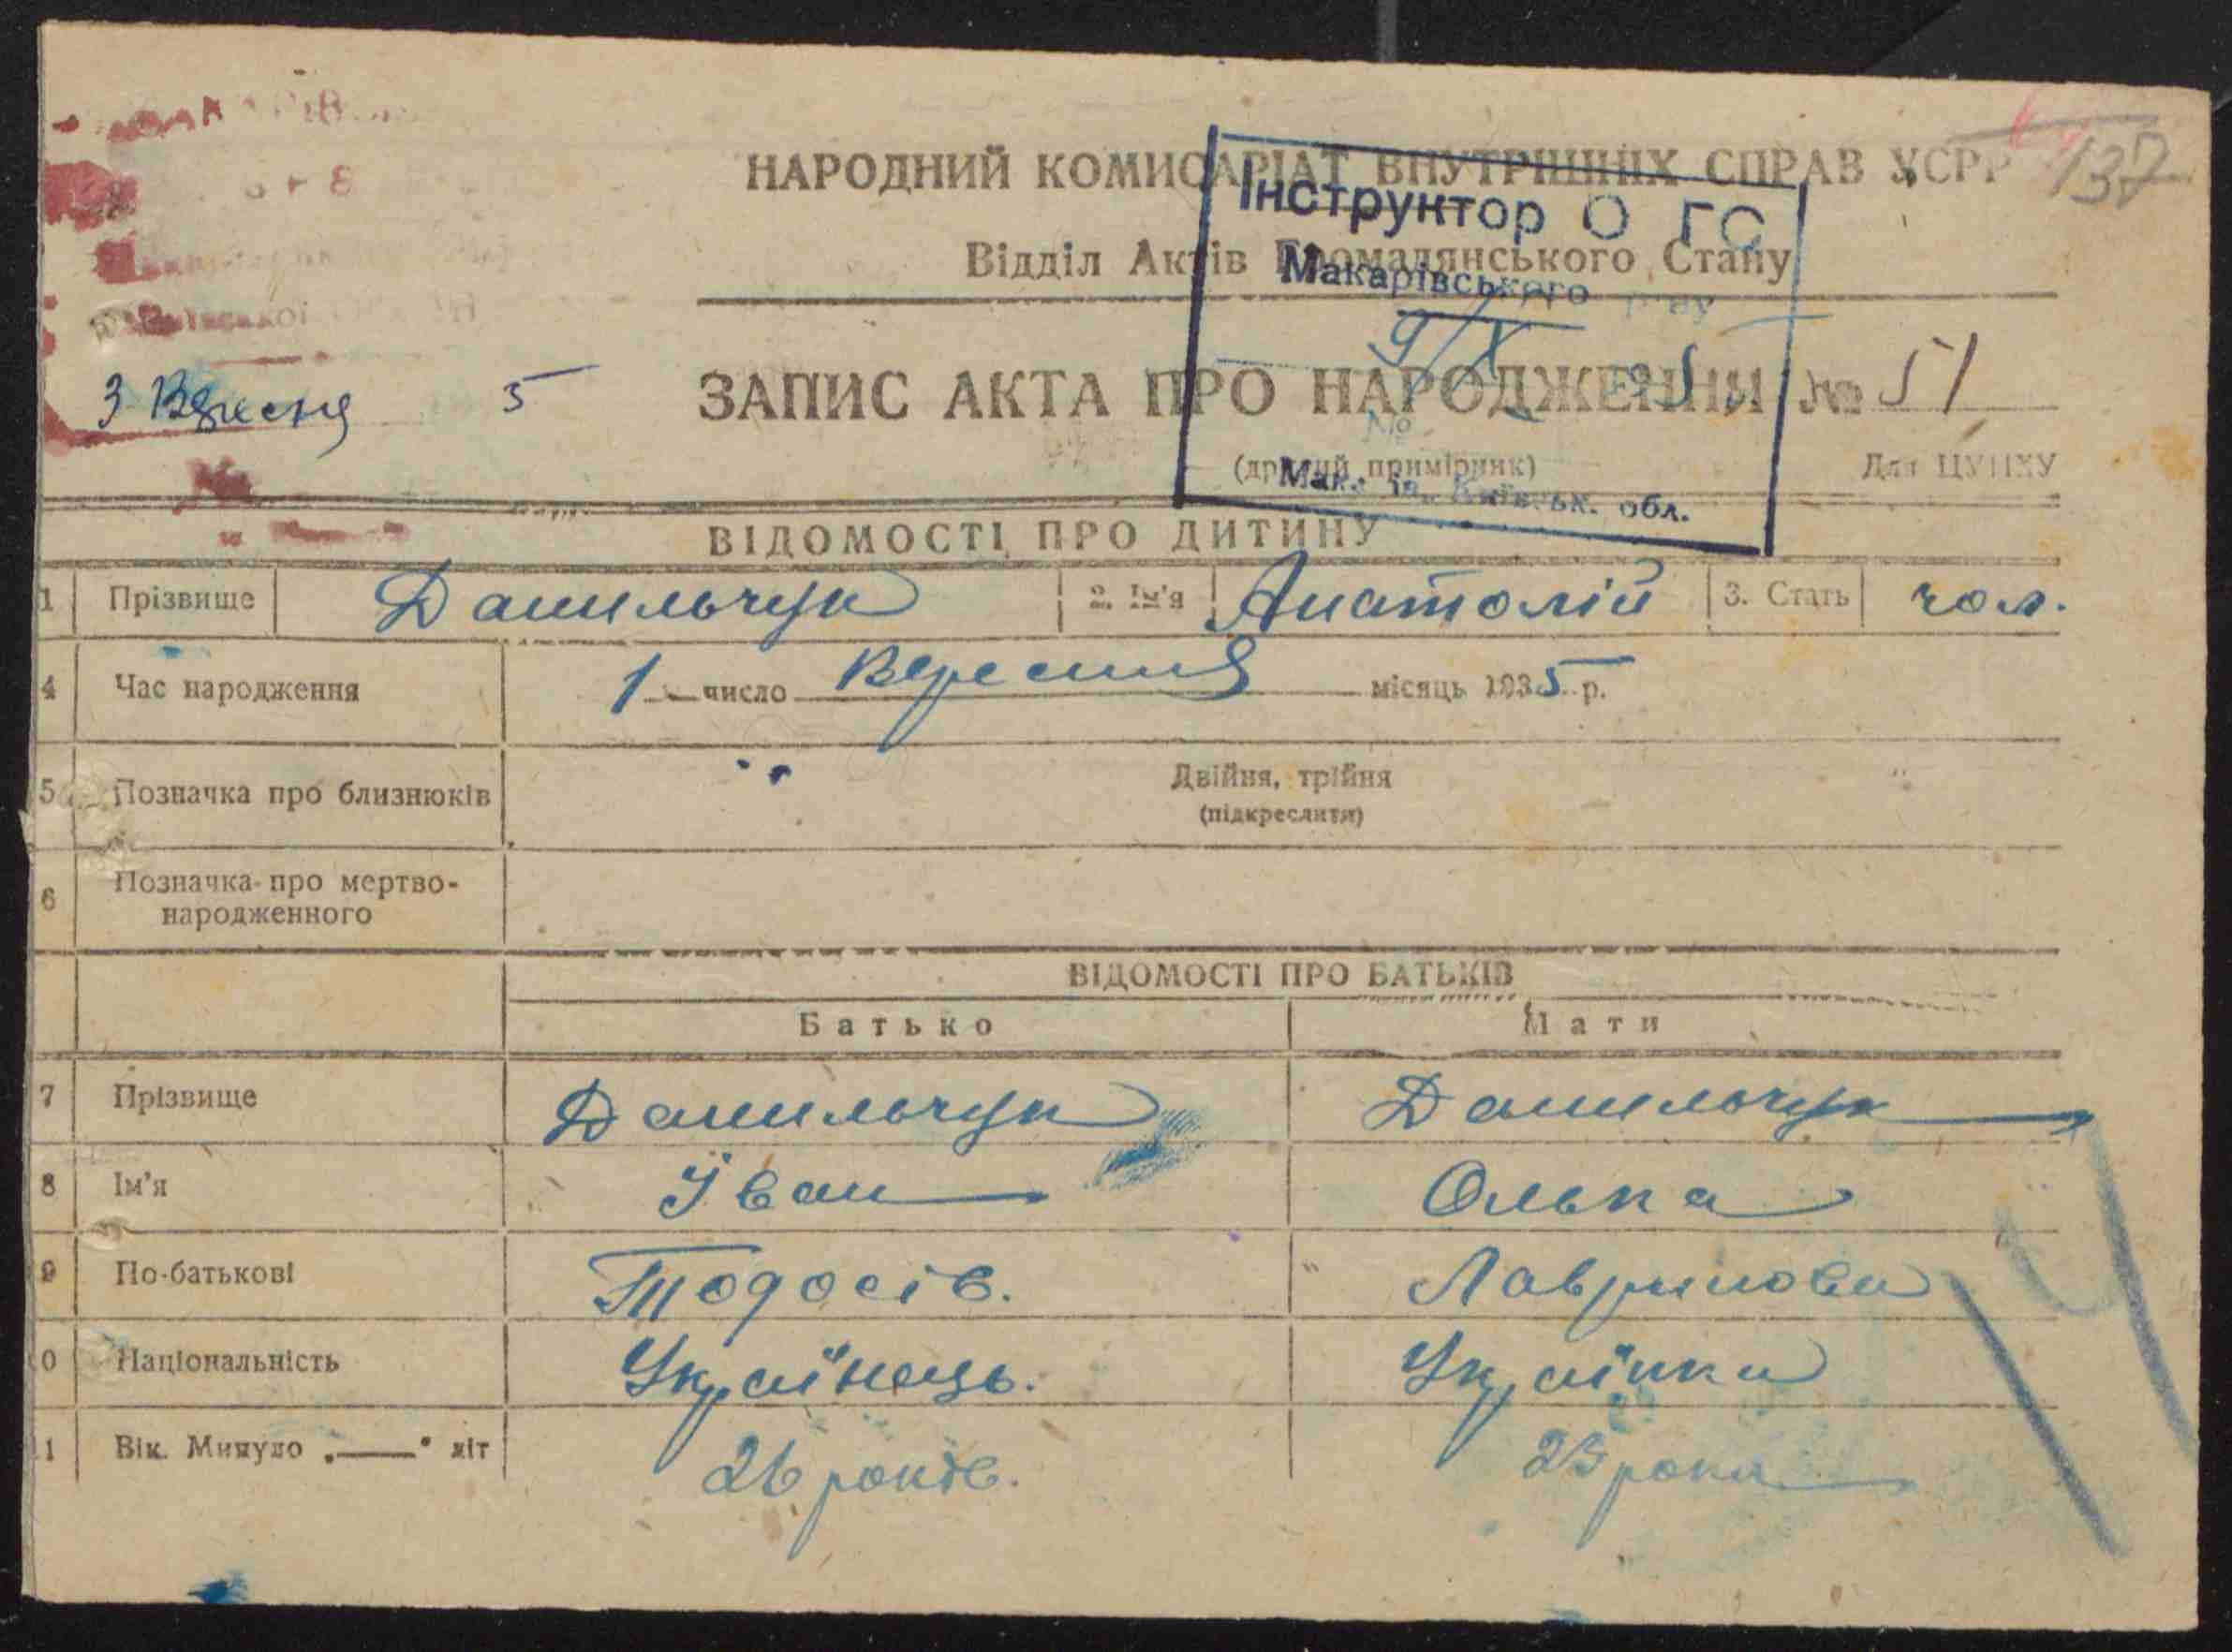 137
НАРОДНИЙ КОМИСАРІАТ ВНУТРІШНІХ СПРАВ УСРР
Інструктор О ГС
Відділ Актів Громадянського Стану
Макарівського р-ну
9/X
3 Вересня 5
ЗАПИС АКТА ПРО НАРОДЖЕННЯ № 51
№
(другий примірник)
Для ЦУНХУ
Мак. Київськ. обл.
ВІДОМОСТІ ПРО ДИТИНУ
1 Прізвище Данильчук 2. Ім'я Анатолій 3. Стать чол.
4 Час народження 1 число Вересня місяць 1935 р.
5 Позначка про близнюків Двійня, трійня
(підкреслити)
6 Позначка про мертво-
народженного
ВІДОМОСТІ ПРО БАТЬКІВ
Батько Мати
7 Прізвище Данильчук Данильчук
8 Ім'я Іван Олька
9 По-батькові Тодосів. Лавринова
0 Національність Українець. Українка
1 Вік. Минуло „—“ літ 26 років. 23 роки